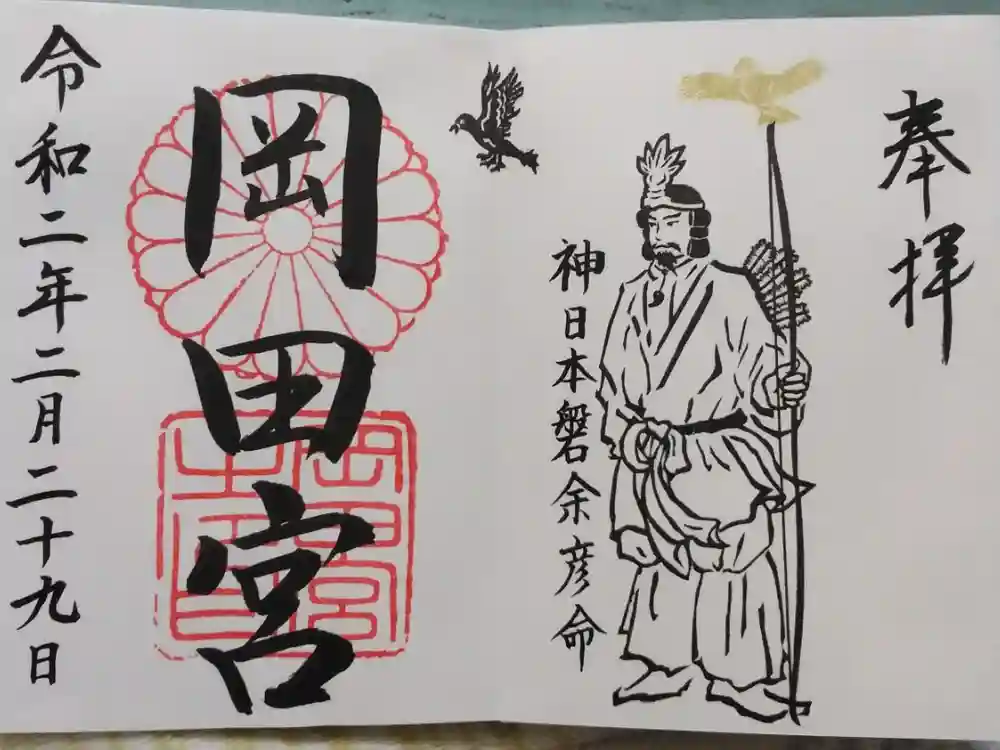 奉拝
神日本磐余彦命
岡田宮
令和二年二月二十九日